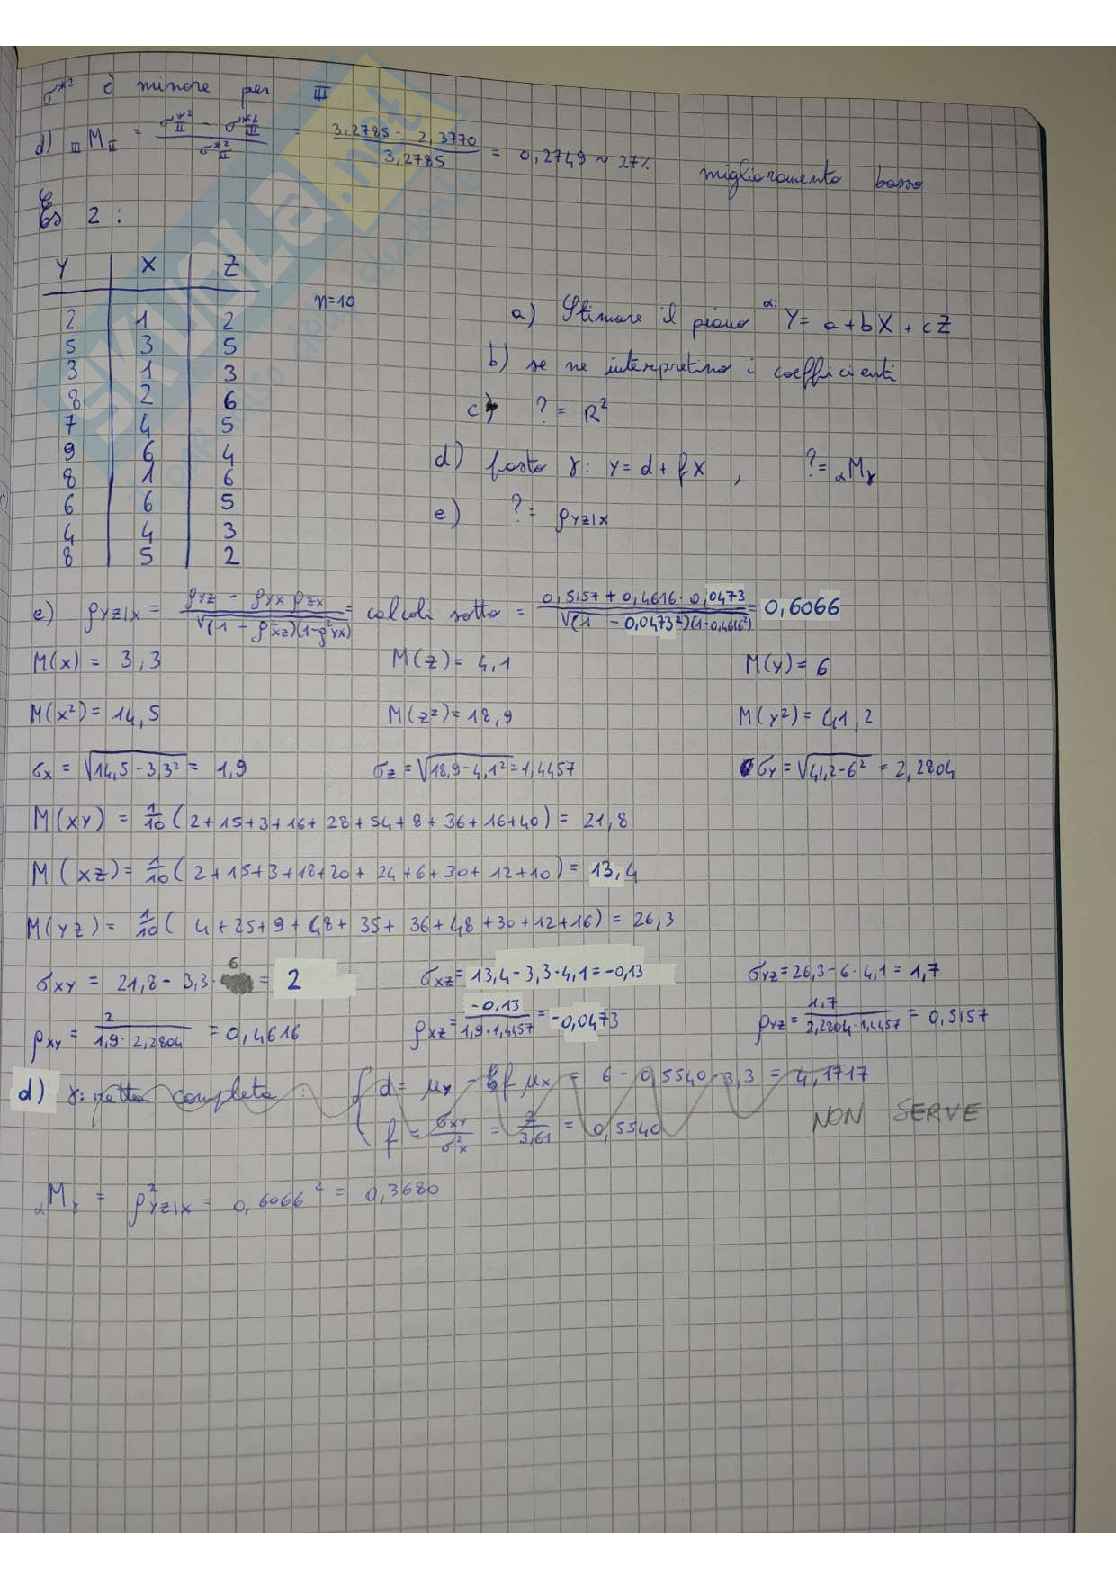 σ*² è minore per III
d) III M II = (σ*²II − σ*²III) / σ*²II = (3,2785 − 2,3770) / 3,2785 = 0,2749 ~ 27% miglioramento basso
Es 2 :
Y X Z
n=10
2 1 2
5 3 5
3 1 3
8 2 6
7 4 5
9 6 4
8 1 6
6 6 5
4 4 3
8 5 2
a) Stimare il piano α: Y = a + bX + cZ
b) se ne interpretino i coefficienti
c) ? = R²
d) posta γ: Y = d + fX , ? = αMγ
e) ? = ρYZ|X
e) ρYZ|X = (ρYZ − ρYX ρZX) / √((1 − ρ²XZ)(1−ρ²YX)) = calcoli sotto = (0,5157 + 0,4616 · 0,0473) / √((1 − 0,0473²)(1−0,4616²)) = 0,6066
M(x) = 3,3 M(z) = 4,1 M(y) = 6
M(x²) = 14,5 M(z²) = 18,9 M(y²) = 41,2
σx = √(14,5−3,3²) = 1,9 σz = √(18,9−4,1²) = 1,4457 σy = √(41,2−6²) = 2,2804
M(xy) = 1/10 (2+15+3+16+28+54+8+36+16+40) = 21,8
M(xz) = 1/10 (2+15+3+12+20+24+6+30+12+10) = 13,4
M(yz) = 1/10 (4+25+9+48+35+36+48+30+12+16) = 26,3
σxy = 21,8 − 3,3 · 6 = 2 σxz = 13,4 − 3,3 · 4,1 = −0,13 σyz = 26,3 − 6 · 4,1 = 1,7
ρxy = 2 / (1,9 · 2,2804) = 0,4616 ρxz = −0,13 / (1,9 · 1,4457) = −0,0473 ρyz = 1,7 / (2,2804 · 1,4457) = 0,5157
d) γ: retta completa : { d = μy − f μx = 6 − 0,5540 · 3,3 = 4,1717
f = σxy / σ²x = 2 / 3,61 = 0,5540 NON SERVE
αMγ = ρ²YZ|X = 0,6066² = 0,3680
SKUOLA.net